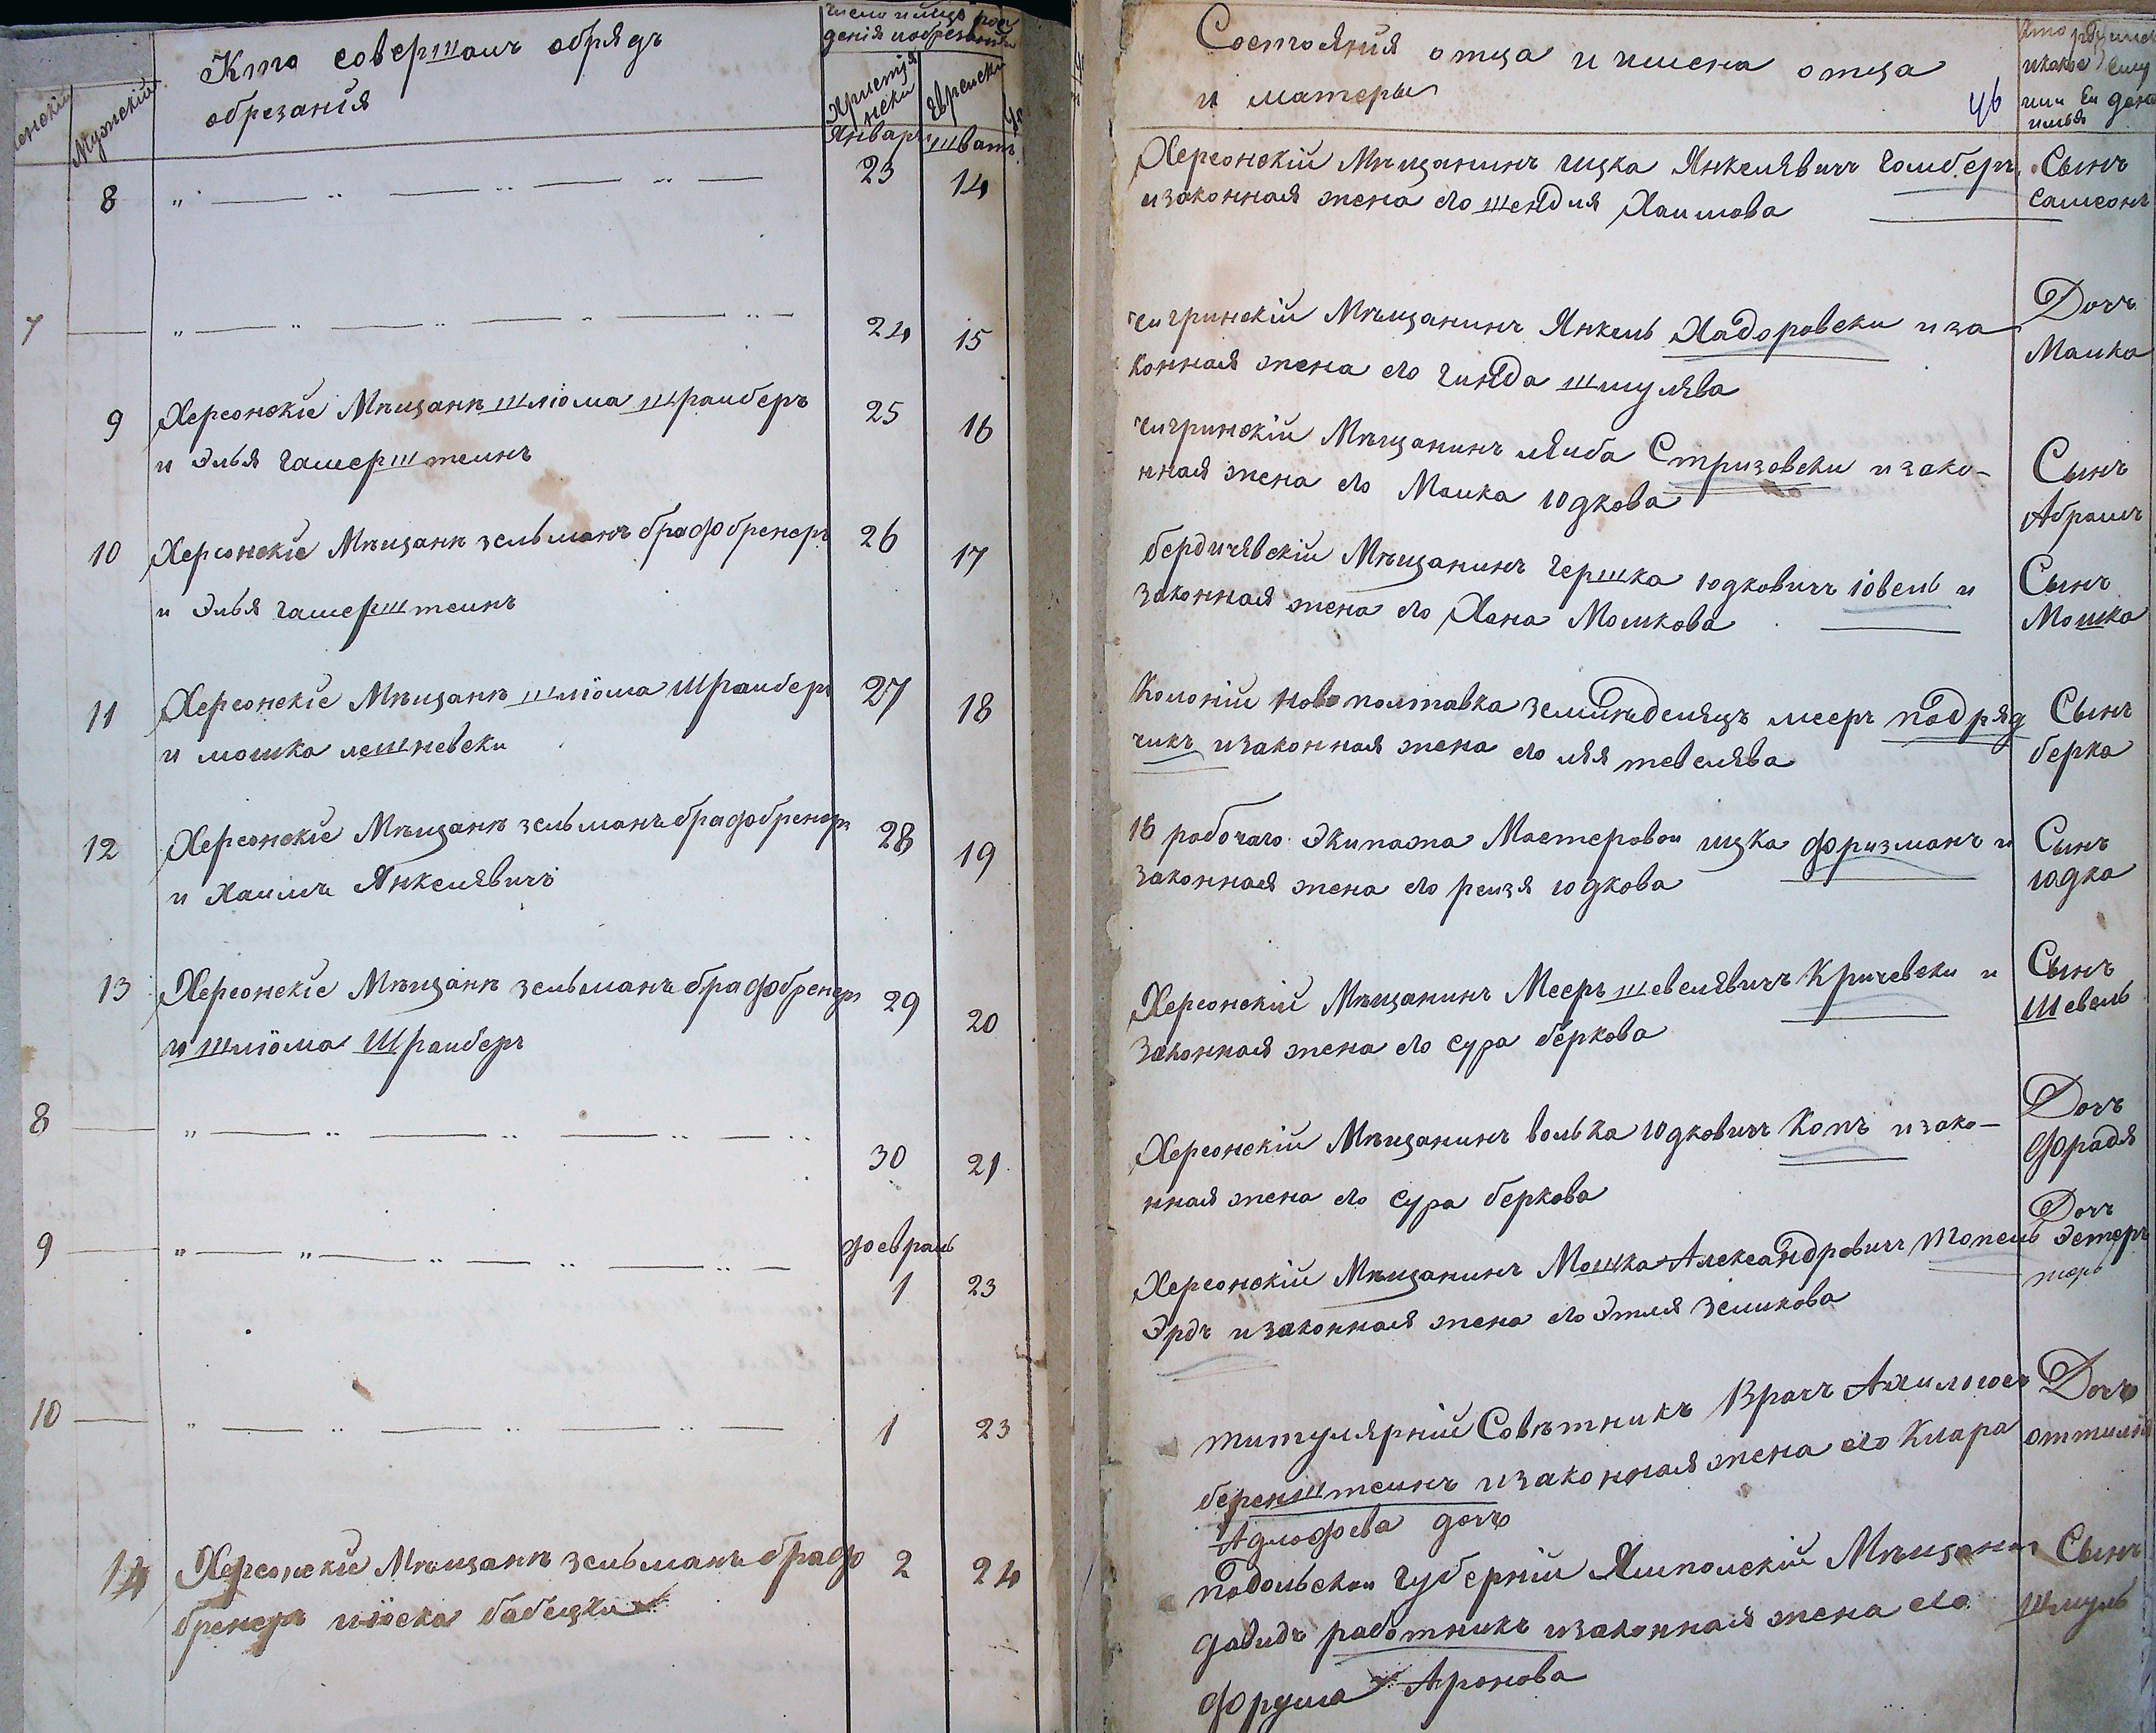 Кто совершалъ обрядъ
обрезанія
число и мѣсяцъ рож
денія и обрезанія
Мужескій
Христія
нски
Еврейски
Январъ
шватъ
8
23
14
7
24
15
9
Херсонскіе Мѣщанѣ шліома шрайберъ
и Элья гамерштеинъ
25
16
10
Херсонскіе Мѣщанѣ зельманъ брафобренеръ
и Элья гамерштеинъ
26
17
11
Херсонскіе Мѣщанѣ шліома Шрайберъ
и мошка лешневски
27
18
12
Херсонскіе Мѣщанѣ зельманъ брафобренеръ
и Хаимъ Янкелявичъ
28
19
13
Херсонскіе Мѣщанѣ зельманъ брафобренеръ
и шліома Шрайберъ
29
20
8
30
21
9
февраль
1
23
10
1
23
14
Херсонскіе Мѣщанѣ зельманъ брафо
бренеръ и іоска бабецки
2
24
Состоянія отца и имена отца
и матеры
46
Херсонскій Мѣщанинъ ицка Янкелявичъ гамберъ
и законная жена его шендля Хаимова
Сынъ
самсонъ
чигринскій Мѣщанинъ Янкель Хадоровски и за
конная жена его гинда шмулява
Дочъ
Малка
чигринскій Мѣщанинъ лейба Стризовски и зако-
нная жена его Малка юдкова
Сынъ
Абрамъ
бердичявскій Мѣщанинъ гершка юдковичъ іовель и
законная жена его Хана Мошкова
Сынъ
Мошка
Колоніи новополтавка земленделяцъ меер подряд
чикъ и законная жена его лея тевелява
Сынъ
берка
16 рабочаго экипажа Мастеровои ицка фризманъ и
законная жена его реизя юдкова
Сынъ
юдка
Херсонскій Мѣщанинъ Мееръ шевелявичъ Кричевски и
законная жена его сура беркова
Сынъ
Шевель
Херсонскій Мѣщанинъ волька юдковичъ Копъ и зако-
нная жена его сура беркова
Дочъ
фрадя
Херсонскій Мѣщанинъ Мошка Александровичъ Топель
Эрдъ и законная жена его этля зеликова
Дочъ
Эстеръ
титулярній Совѣтникъ Врачъ
беренштеинъ и законная жена его Клара
Адлофева дочъ
Дочъ
оттилія
подольскои губерніи Ямполскій Мѣщанин
давидъ работникъ и законная жена его
фрума Аронова
Сынъ
Шмуль